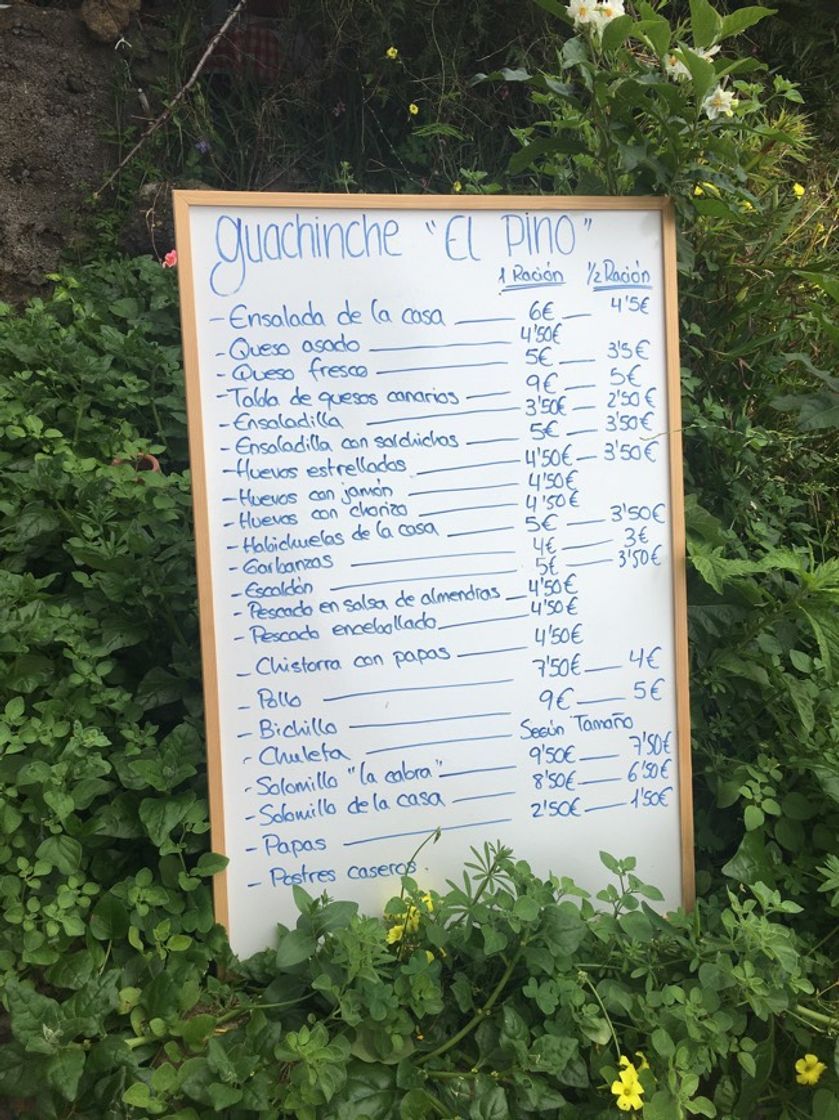 Guachinche "El Pino"
1 Ración 1/2 Ración
- Ensalada de la casa 6€ 4'5€
- Queso asado 4'50€
- Queso fresco 5€ 3'5€
- Tabla de quesos canarios 9€ 5€
- Ensaladilla 3'50€ 2'50€
- Ensaladilla con salchichas 5€ 3'50€
- Huevos estrellados 4'50€ 3'50€
- Huevos con jamón 4'50€
- Huevos con chorizo 4'50€
- Habichuelas de la casa 5€ 3'50€
- Garbanzas 4€ 3€
- Escaldón 5€ 3'50€
- Pescado en salsa de almendras 4'50€
- Pescado encebollado 4'50€
- Chistorra con papas 4'50€
- Pollo 7'50€ 4€
- Bichillo 9€ 5€
- Chuleta Según Tamaño
- Solomillo "la cabra" 9'50€ 7'50€
- Solomillo de la casa 8'50€ 6'50€
- Papas 2'50€ 1'50€
- Postres caseros.